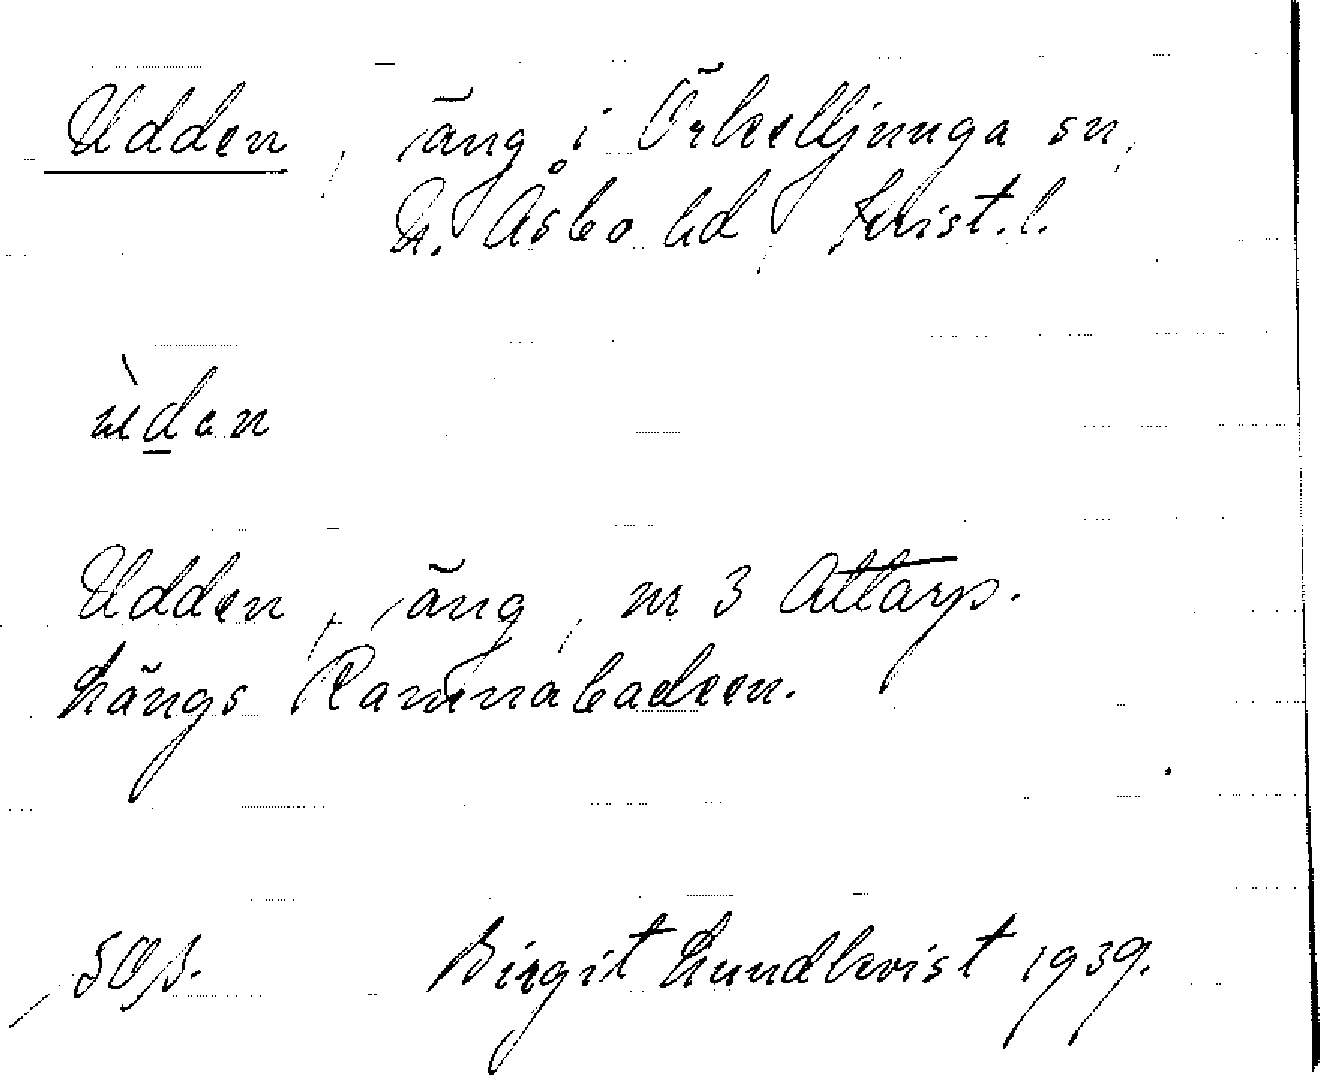 Udden, äng i Örkelljunga sn,
N. Åsbo hd, Krist. l.
ùden
Udden, äng, nr 3 Attarp.
Längs Rammabäcken.
Birgit Lundkvist 1939.